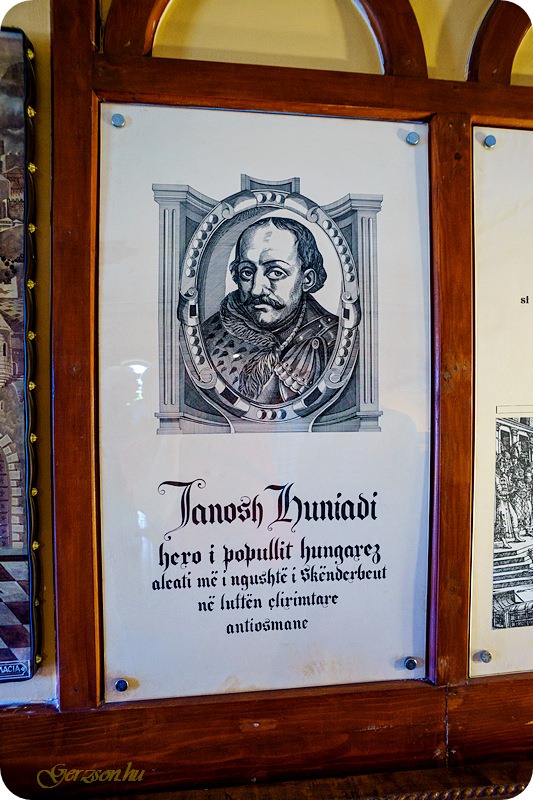 Janosh Huniadi
hero i popullit hungarez
aleati më i ngushtë i Skënderbeut
në luftën çlirimtare
antiosmane
si
MACIA
Gerzson.hu